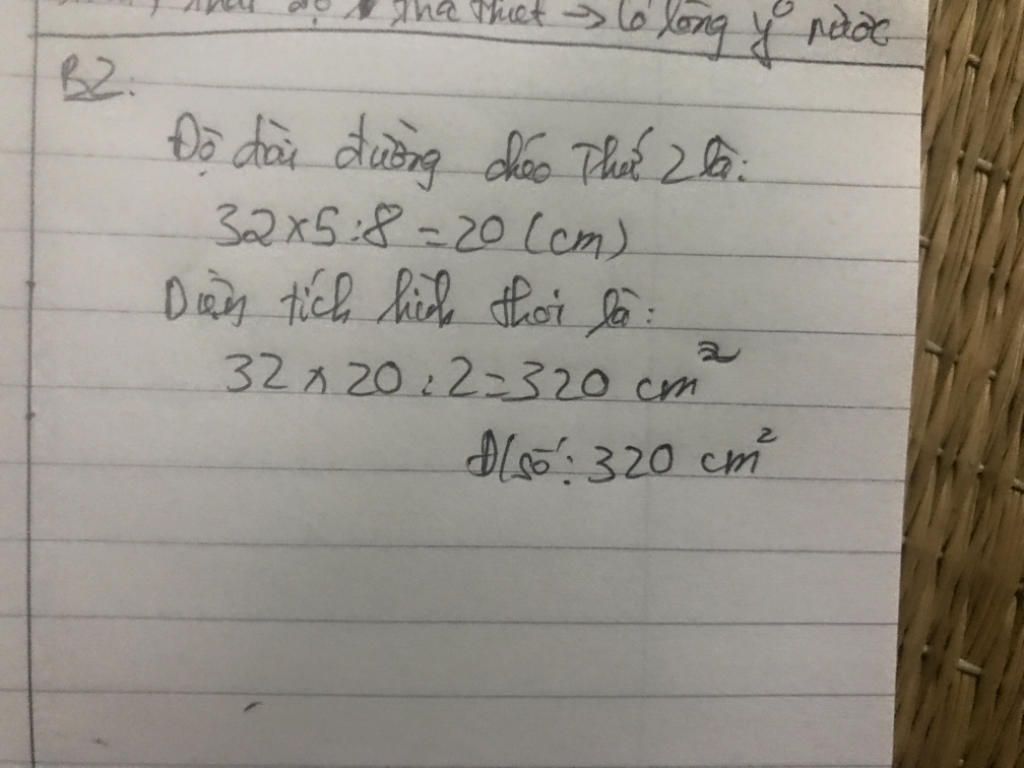 thiết → Có lòng yº nước
B2:
Độ dài đường chéo Thứ 2 là:
32×5:8=20 (cm)
Diện tích hình thoi là:
32 × 20 : 2 = 320 cm²
Đ/số: 320 cm²